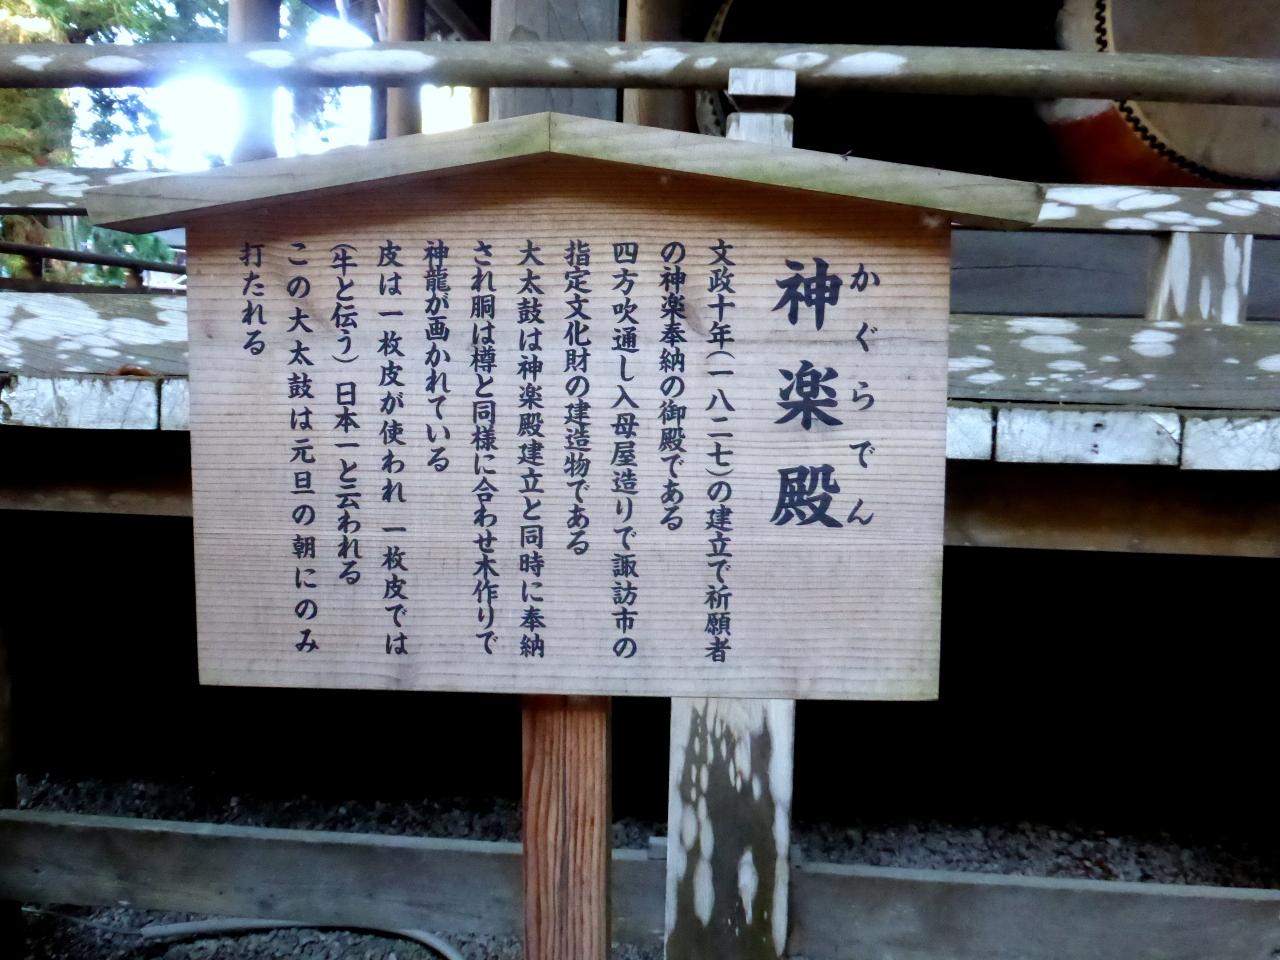 神楽殿
かぐらでん
文政十年(一八二七)の建立で祈願者
の神楽奉納の御殿である
四方吹通し入母屋造りで諏訪市の
指定文化財の建造物である
大太鼓は神楽殿建立と同時に奉納
され胴は樽と同様に合わせ木作りで
神龍が画かれている
皮は一枚皮が使われ 一枚皮では
(牛と伝う) 日本一と云われる
この大太鼓は元旦の朝にのみ
打たれる